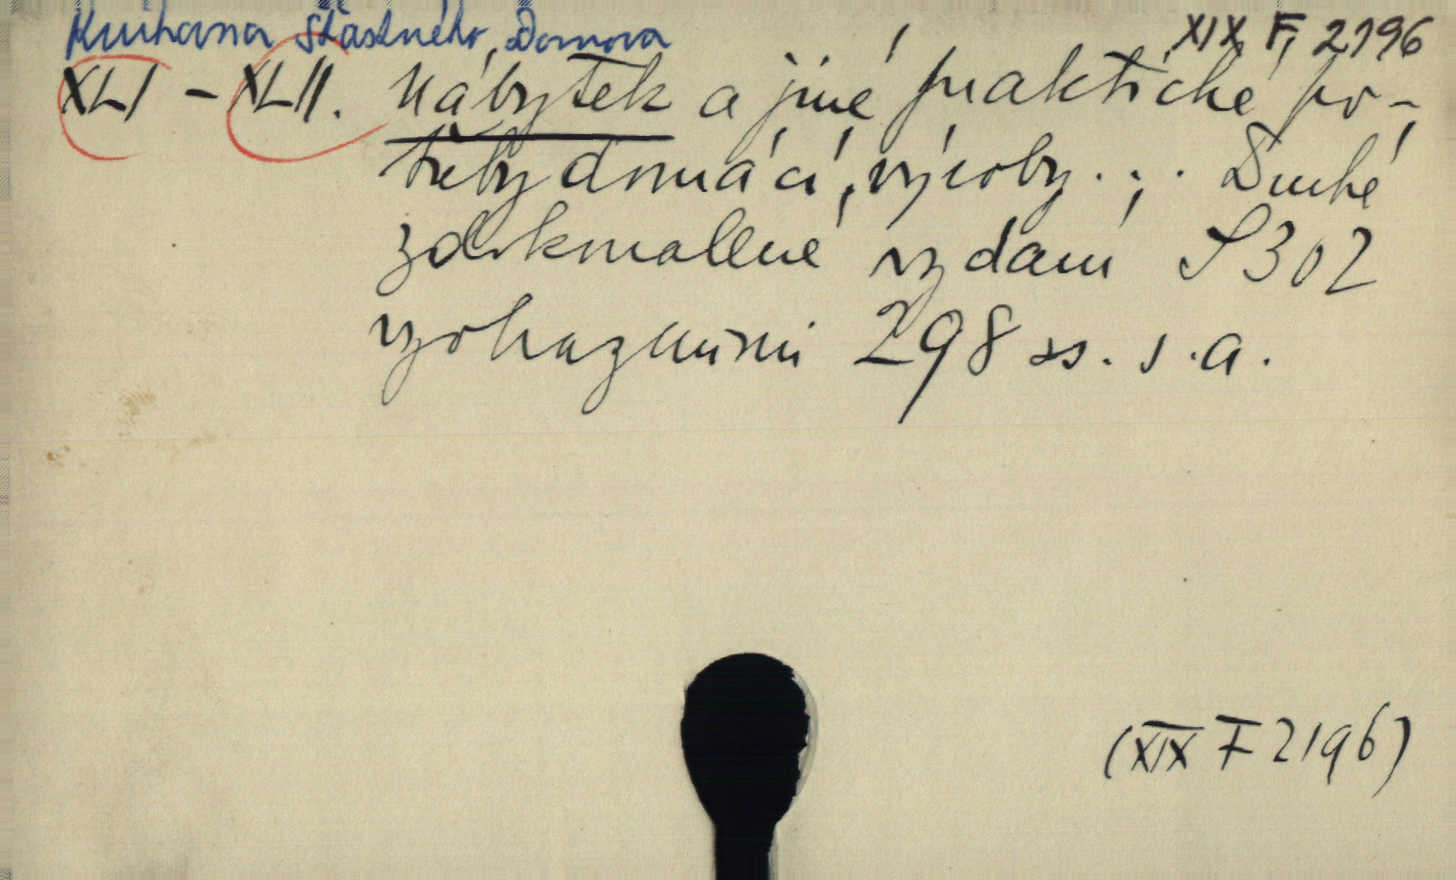 Knihovna Šťastného Domova
XIX F, 2196
XLI - XLII. Nábytek a jiné praktické po-
třeby domácí, výroby... Druhé
zdokonalené vydání S 302
vyobrazeními 298 ss. s.a.
(XIX F 2196)